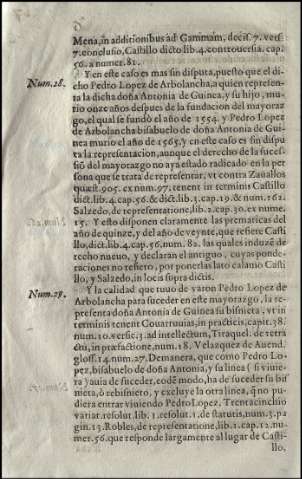 Mena, in additionibus ad Gammam, decis. 7. vers.
7. conclusio, Castillo dicto lib. 4. controuersia. cap.
50. a numer. 81.
Num. 28. Y en este caso es mas sin disputa, puesto que el di-
cho Pedro Lopez de Arbolancha, a quien represen-
ta la dicha doña Antonia de Guinea, y su hijo, mu-
rio onze años despues de la fundacion del mayoraz
go, el qual se fundò el año de 1554. y Pedro Lopez
de Arbolancha bisabuelo de doña Antonia de Gui-
nea murio el año de 1565. y en este caso es sin dispu
ta la representacion, aunque el derecho de la suces-
sió del mayorazgo no aya estado radicado en la per
sona que se trata de representar, vt contra Zauallos
quæst. 905. ex num. 97. tenent in terminis Castillo
dict. lib. 4. cap. 56. & dict. lib. 1. cap. 19. & num. 162.
Salzedo, de representatione, lib. 1. cap. 30. ex nume.
15. Y esto disponen claramente las prematicas del
año de quinze, y del año de veynte, que refiere Casti
llo, dict. lib. 4. cap. 56. num. 82. las quales induzẽ de
recho nueuo, y declaran el antiguo, cuyas ponde-
raciones no refiero, por ponerlas lato calamo Casti
llo, y Salzedo, in locis supra dictis.
Num. 29. Y la calidad que tuuo de varon Pedro Lopez de
Arbolancha para suceder en este mayorazgo, la re-
presenta doña Antonia de Guinea su bisnieta. vt in
terminis tenent Couarruuias, in practicis, capit. 38.
num. 10. versic. 3. ad intellectum, Tiraquel. de retra
ctu, in præfactione, num. 18. Velazquez de Auend.
gloss. 14. num. 27. Demanera, que como Pedro Lo-
pez, bisabuelo de doña Antonia, y su linea (si viuie-
ra) auia de suceder, eodẽ modo, ha de suceder su bis
nieta, ò rebisnieto, y excluye la otra linea, q̃ no pu-
diera entrar viuiendo Pedro Lopez. Trentacinchio
variar. resolut. lib. 1. resolut. 1. de statutis, num. 5. pa
gin. 13. Robles, de representatione, lib. 1. cap. 12. nu-
mer. 56. que responde largamente al lugar de Casti-
llo.